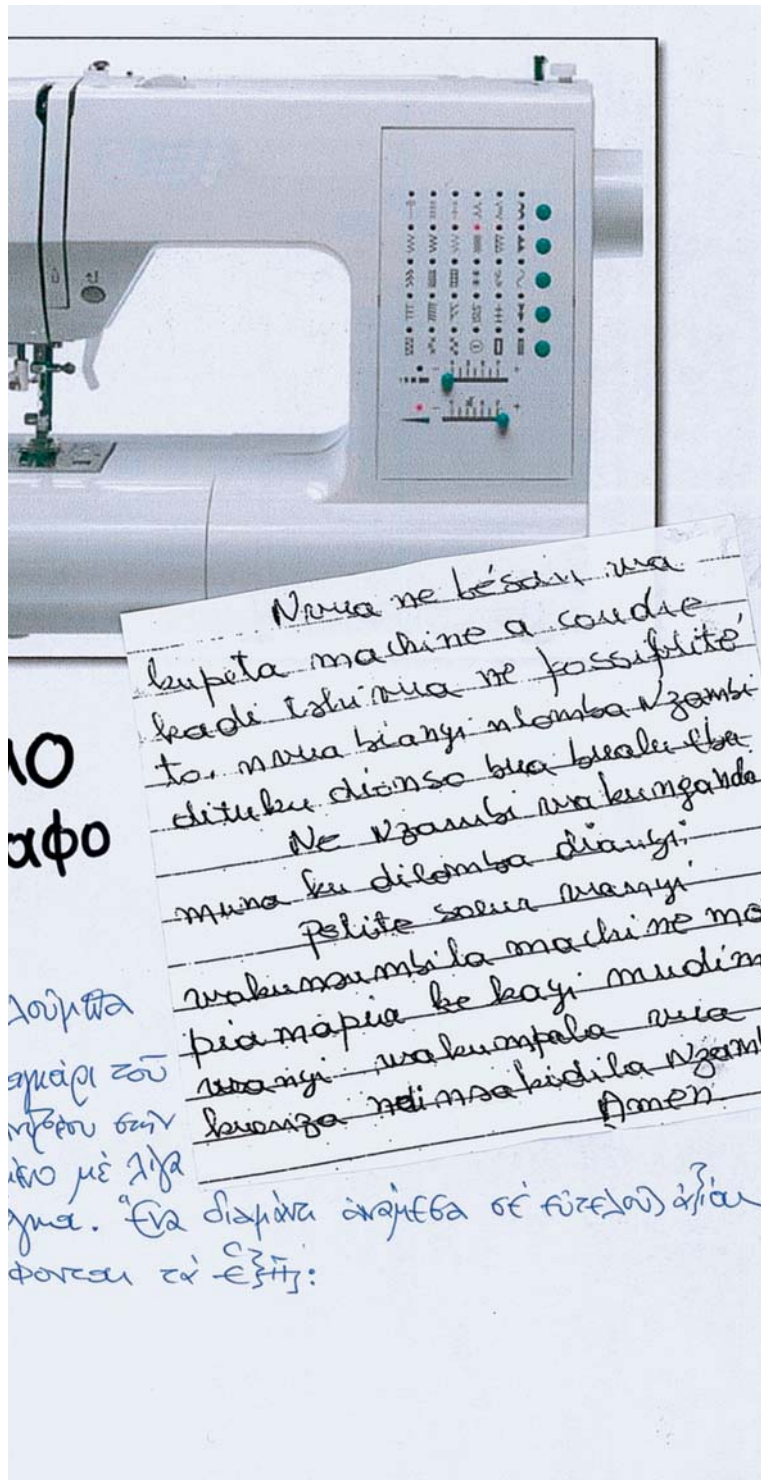 Nvua ne bésoin wa
kupeta machine a coudre
kadi tshivua ne possibilité
to. nvua bianyi nlomba Nzambi
dituku dionso bua bualu ebu
Ne Nzambi wakungandamuna
ku dilomba dianyi.
Petite soeur wanyi
wakunsumbila machine
piamapia ke kayi
wanyi wakumpela
kuenza ndi nsakidila
Amen
ΙΟ
αφο
λούμπα
τοῦ
στήν
μὲ λίγα
Ἕνα διαμάντι ἀνάμεσα σέ εὐτελοῦς ἀξίας
τὰ ἑξῆς: